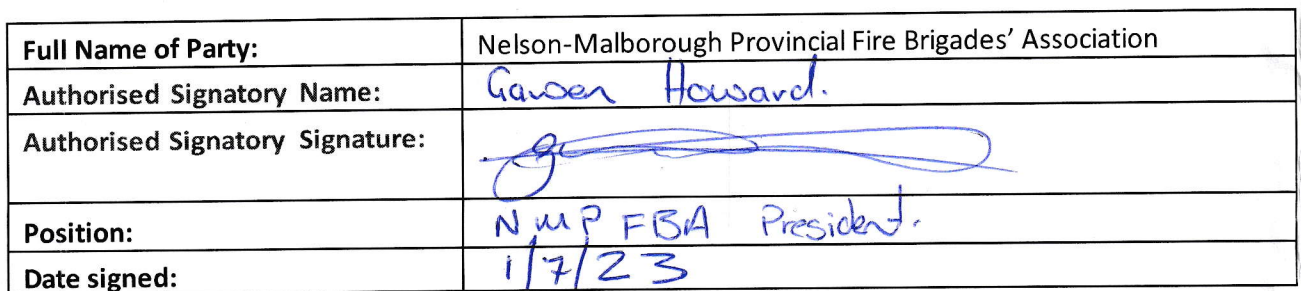 Full Name of Party: Nelson-Malborough Provincial Fire Brigades' Association
Authorised Signatory Name: Gawen Howard.
Authorised Signatory Signature:
Position: NMP FBA President.
Date signed: 1/7/23